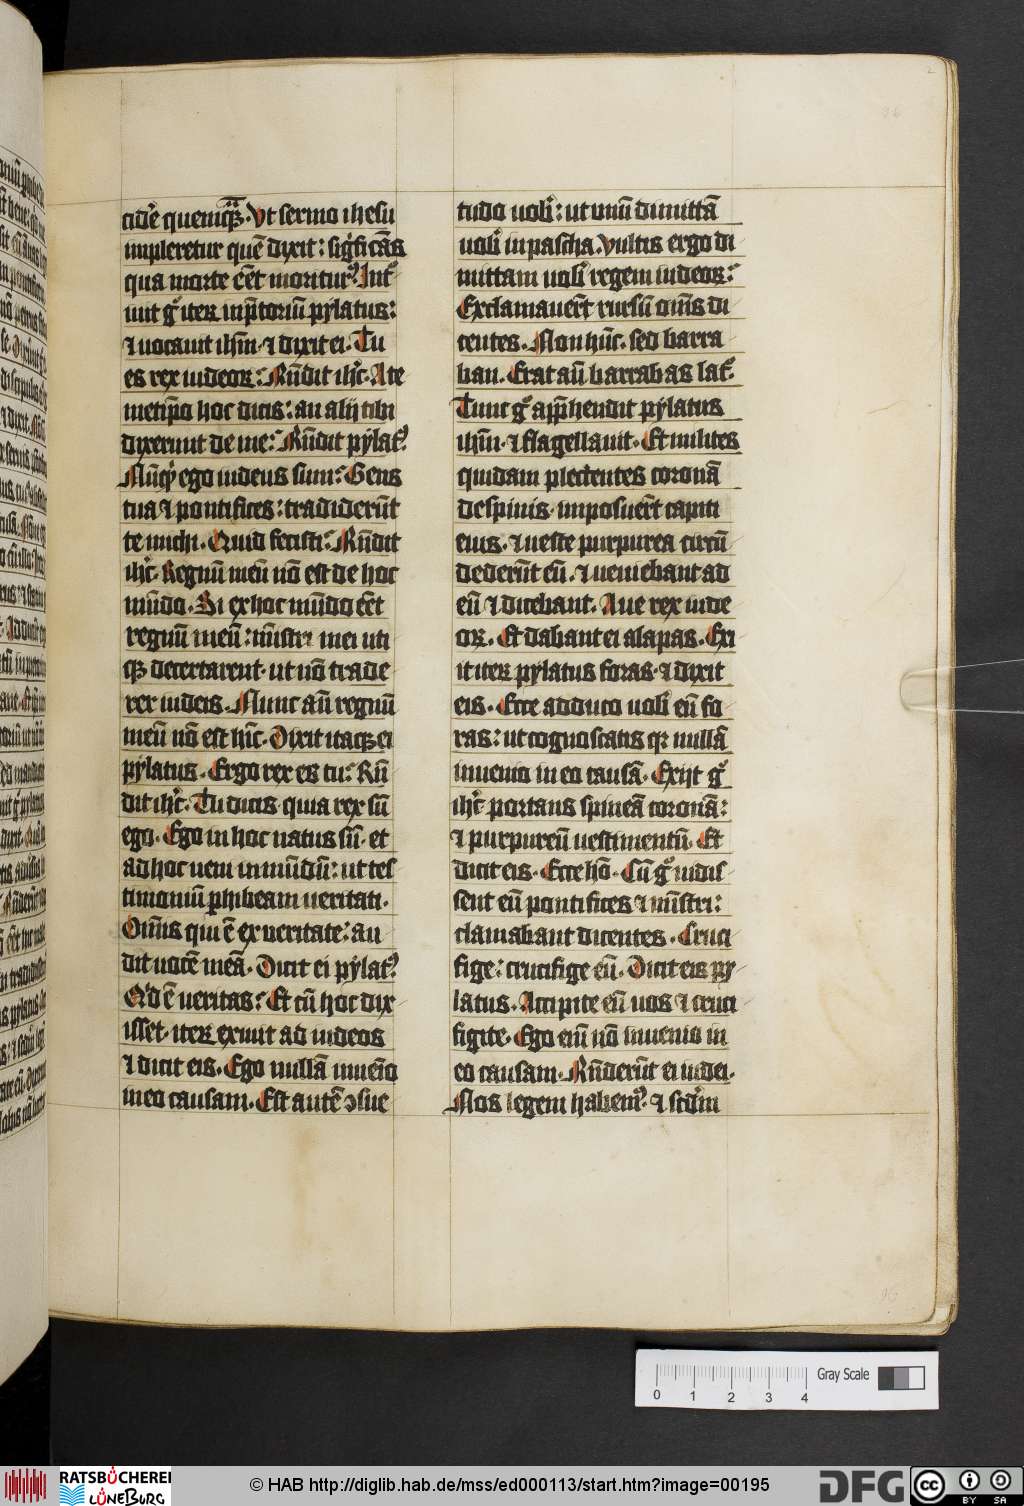 cidē quemqȝ. Vt sermo ihesu
impleretur quē dixit: sigͥficās
qua morte eēt moritur⁹. Intͦ
iuit gͦ iteꝝ in p̄toriū pylatus:
⁊ uocauit ihm̄. ⁊ dixit ei. Tu
es rex iudeoꝝ: Rn̄dit ihc̄. A te
metip̄o hoc dicis: an alij tibi
dixerunt de me: Rn̄dit pylat⁹
Nūqͥd ego iudeus sum: Gens
tua ⁊ pontifices: tradiderūt
te michi. Quid fecisti: Rn̄dit
ihc̄. Regnū meū nō est de hoc
mūdo. Si ex hoc mūdo eēt
regnū meū: mīstri mei uti
qȝ decertarent. ut nō trade
rer iudeis. Nunc aū regnū
meū nō est hīc. Dixit itaqȝ ei
pylatus. Ergo rex es tu: Rn̄
dit ihc̄. Tu dicis quia rex sū
ego. Ego in hoc natus sū. et
ad hoc ueni in mūdū: ut tes
timoniū phibeam ueritati.
Omīs qui ē ex ueritate: au
dit uocē meā. Dicit ei pylat⁹
Qͥd ē ueritas: Et cū hoc dix
isset. iteꝝ exiuit ad iudeos
⁊ dicit eis. Ego nullā inueīo
in eo causam. Est autē ↄsue
tudo uobͥ: ut unū dimittā
uobͥ in pascha. Vultis ergo di
mittam uobͥ regem iudeoꝝ:
Exclamauerūt rursū om̄s di
centes. Non hūc. sed barra
ban. Erat aū barrabas latͦ.
Tunc gͦ app̄hendit pylatus
ihm̄. ⁊ flagellauit. Et milites
quidam plectentes coronā
de spinis. imposuert̄ capiti
eius. ⁊ ueste purpurea circū
dederūt eū. ⁊ ueniebant ad
eū ⁊ dicebant. Aue rex iude
oꝝ. Et dabant ei alapas. Exi
it iteꝝ pylatus foras. ⁊ dixit
eis. Ecce adduco uobͥ eū fo
ras: ut cognoscatis qꝛ nullā
inuenio in eo causā. Exijt gͦ
ihc̄ portans spineā coronā:
⁊ purpureū uestimentū. Et
dicit eis. Ecce hō. Cū gͦ uidis
sent eū pontifices ⁊ mīstri:
clamabant dicentes. Cruci
fige: crucifige eū. Dicit eis py
latus. Accipite eū uos ⁊ cruci
figite. Ego eim̄ nō inuenio in
eo causam. Rn̄derūt ei iudei.
Nos legem habem⁹. ⁊ scd̄m
0 1 2 3 4 Gray Scale
RATSBÜCHEREI
LÜNEBURG
© HAB http://diglib.hab.de/mss/ed000113/start.htm?image=00195
DFG
cc BY SA